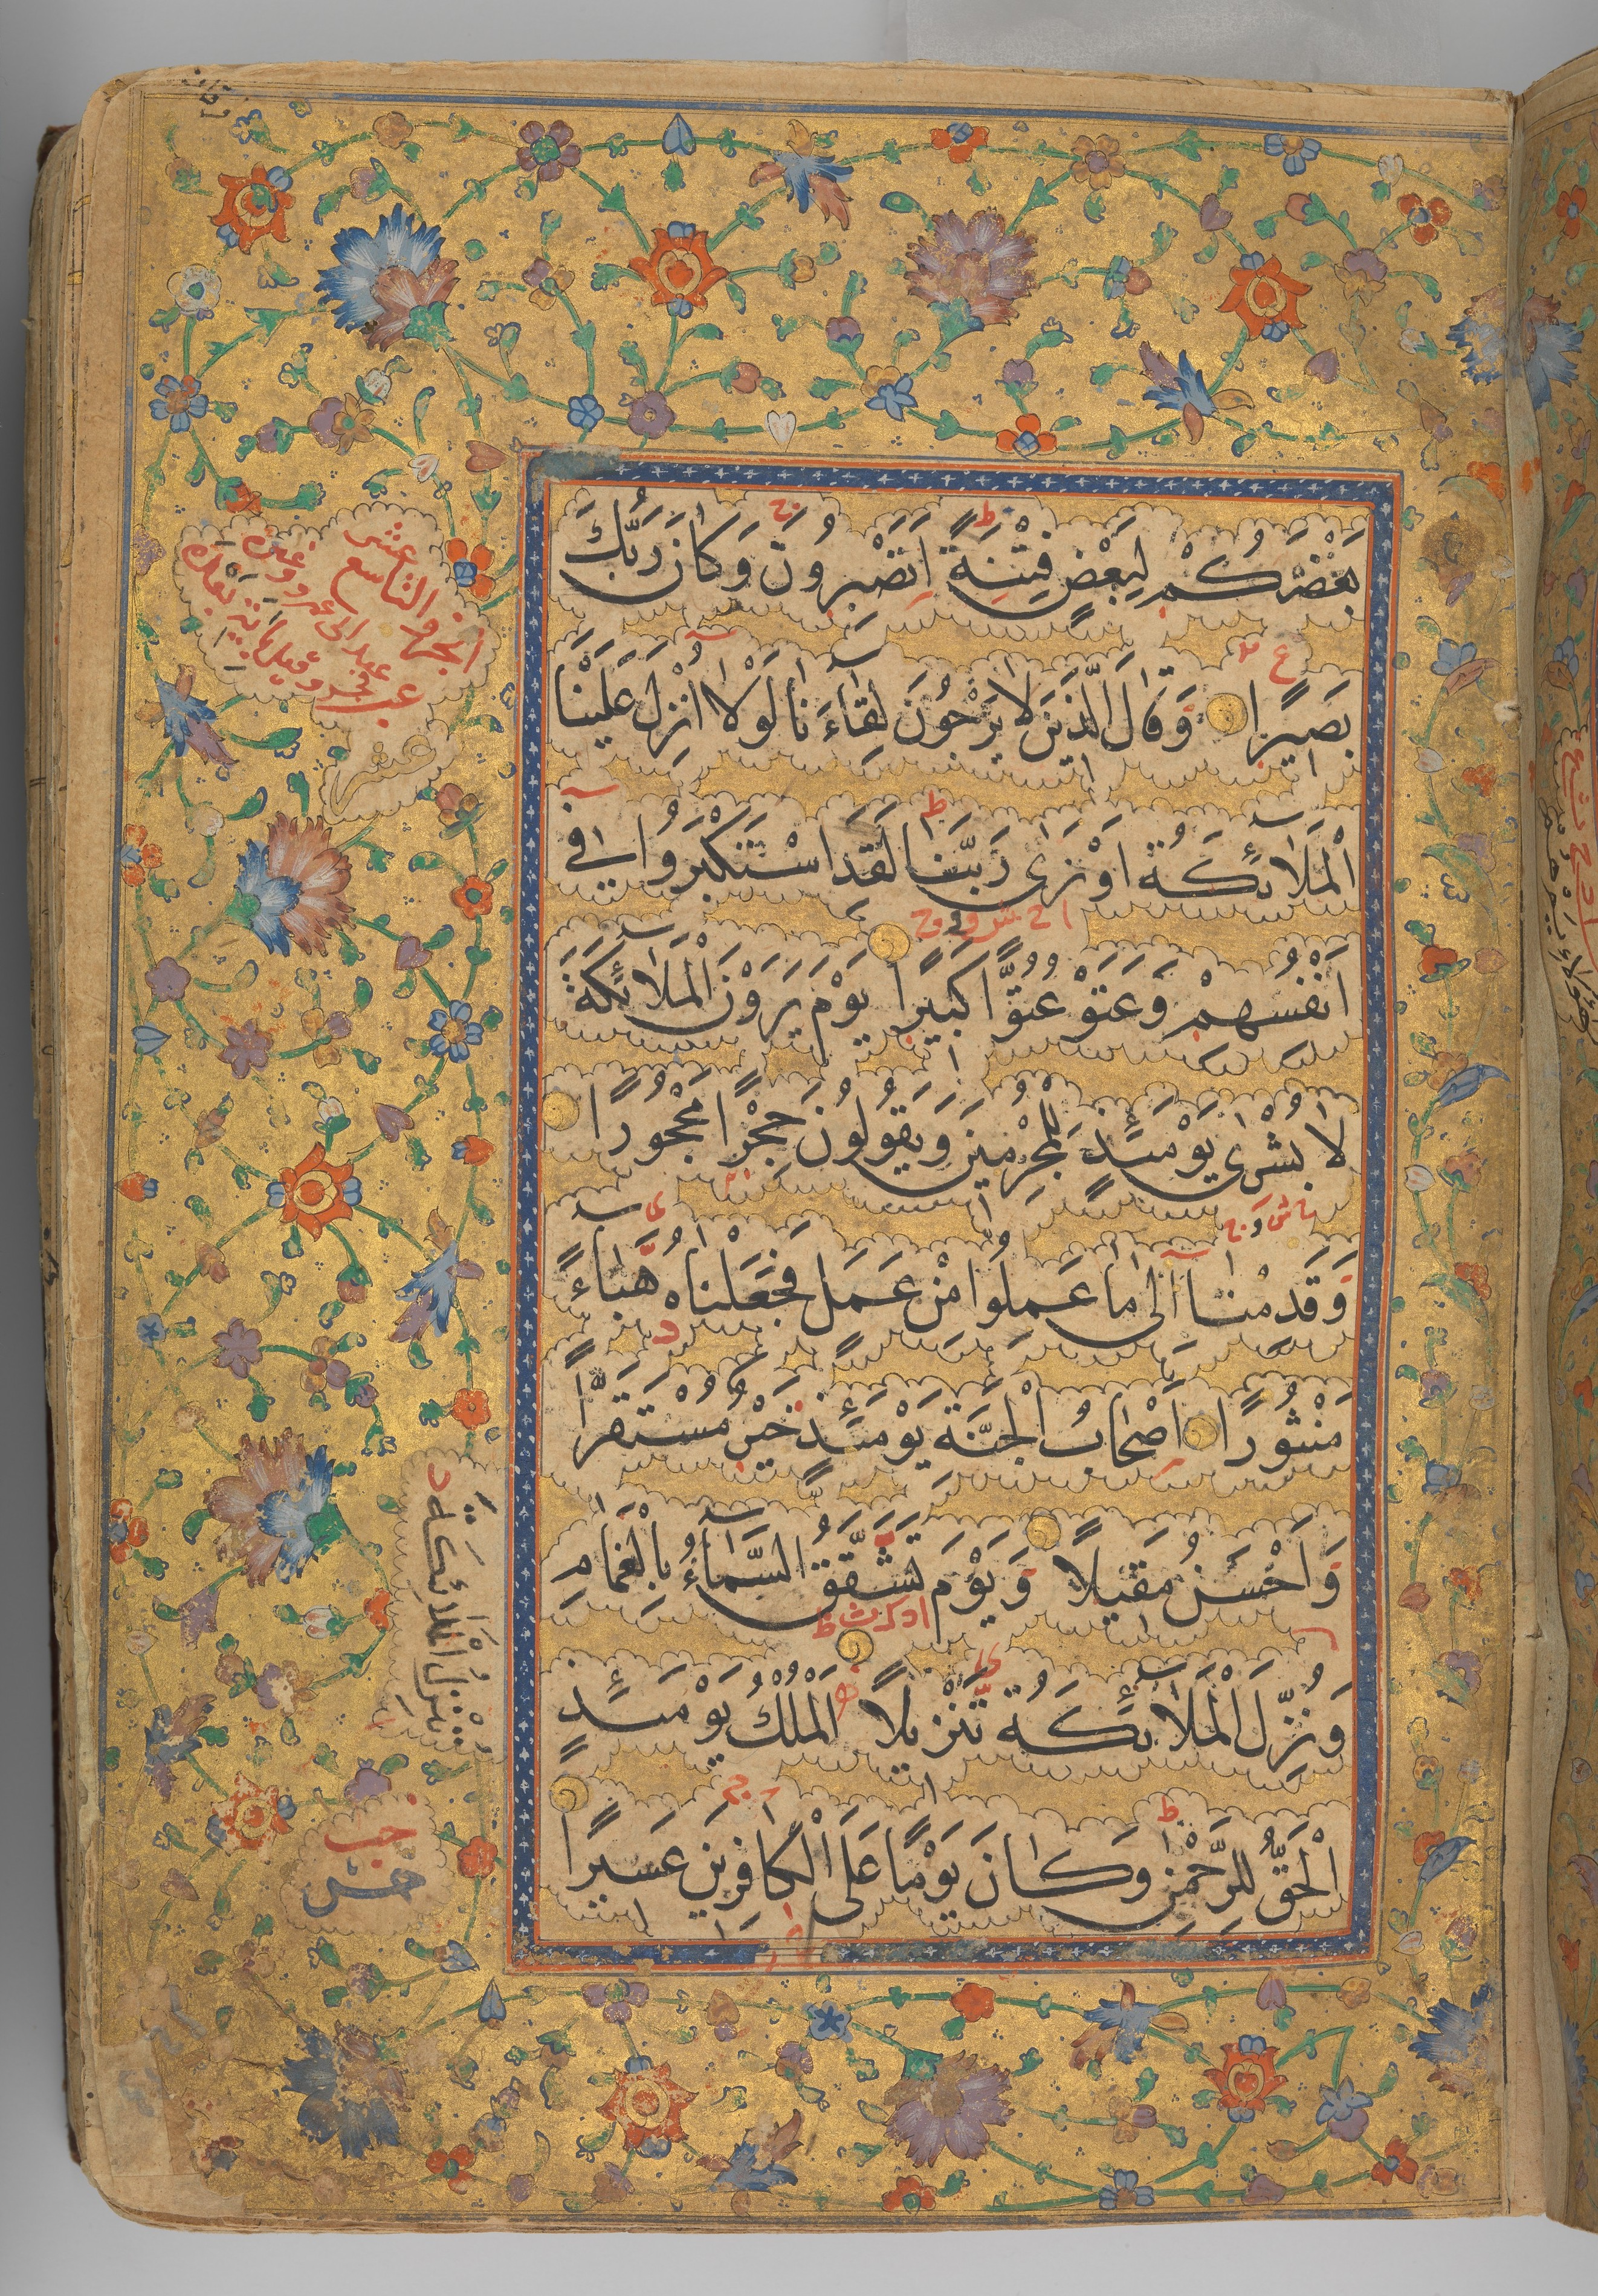 بَعْضَكُمْ لِبَعْضٍ فِتْنَةً اَتَصْبِرُونَ وَكَانَ رَبُّكَ
بَصِيرًا وَقَالَ الَّذِينَ لَا يَرْجُونَ لِقَاءَنَا لَوْلَا اُنْزِلَ عَلَيْنَا
الْمَلَائِكَةُ اَوْ نَرٰى رَبَّنَا لَقَدِ اسْتَكْبَرُوا فِي
اَنْفُسِهِمْ وَعَتَوْ عُتُوًّا كَبِيرًا يَوْمَ يَرَوْنَ الْمَلَائِكَةَ
لَا بُشْرٰى يَوْمَئِذٍ لِلْمُجْرِمِينَ وَيَقُولُونَ حِجْرًا مَحْجُورًا
وَقَدِمْنَا اِلٰى مَا عَمِلُوا مِنْ عَمَلٍ فَجَعَلْنَاهُ هَبَاءً
مَنْثُورًا اَصْحَابُ الْجَنَّةِ يَوْمَئِذٍ خَيْرٌ مُسْتَقَرًّا
وَاَحْسَنُ مَقِيلًا وَيَوْمَ تَشَقَّقُ السَّمَاءُ بِالْغَمَامِ
وَنُزِّلَ الْمَلَائِكَةُ تَنْزِيلًا اَلْمُلْكُ يَوْمَئِذٍ
الْحَقُّ لِلرَّحْمٰنِ وَكَانَ يَوْمًا عَلَى الْكَافِرِينَ عَسِيرًا
الجزء التاسع عشر
نُنْزِلُ الْمَلَائِكَةَ